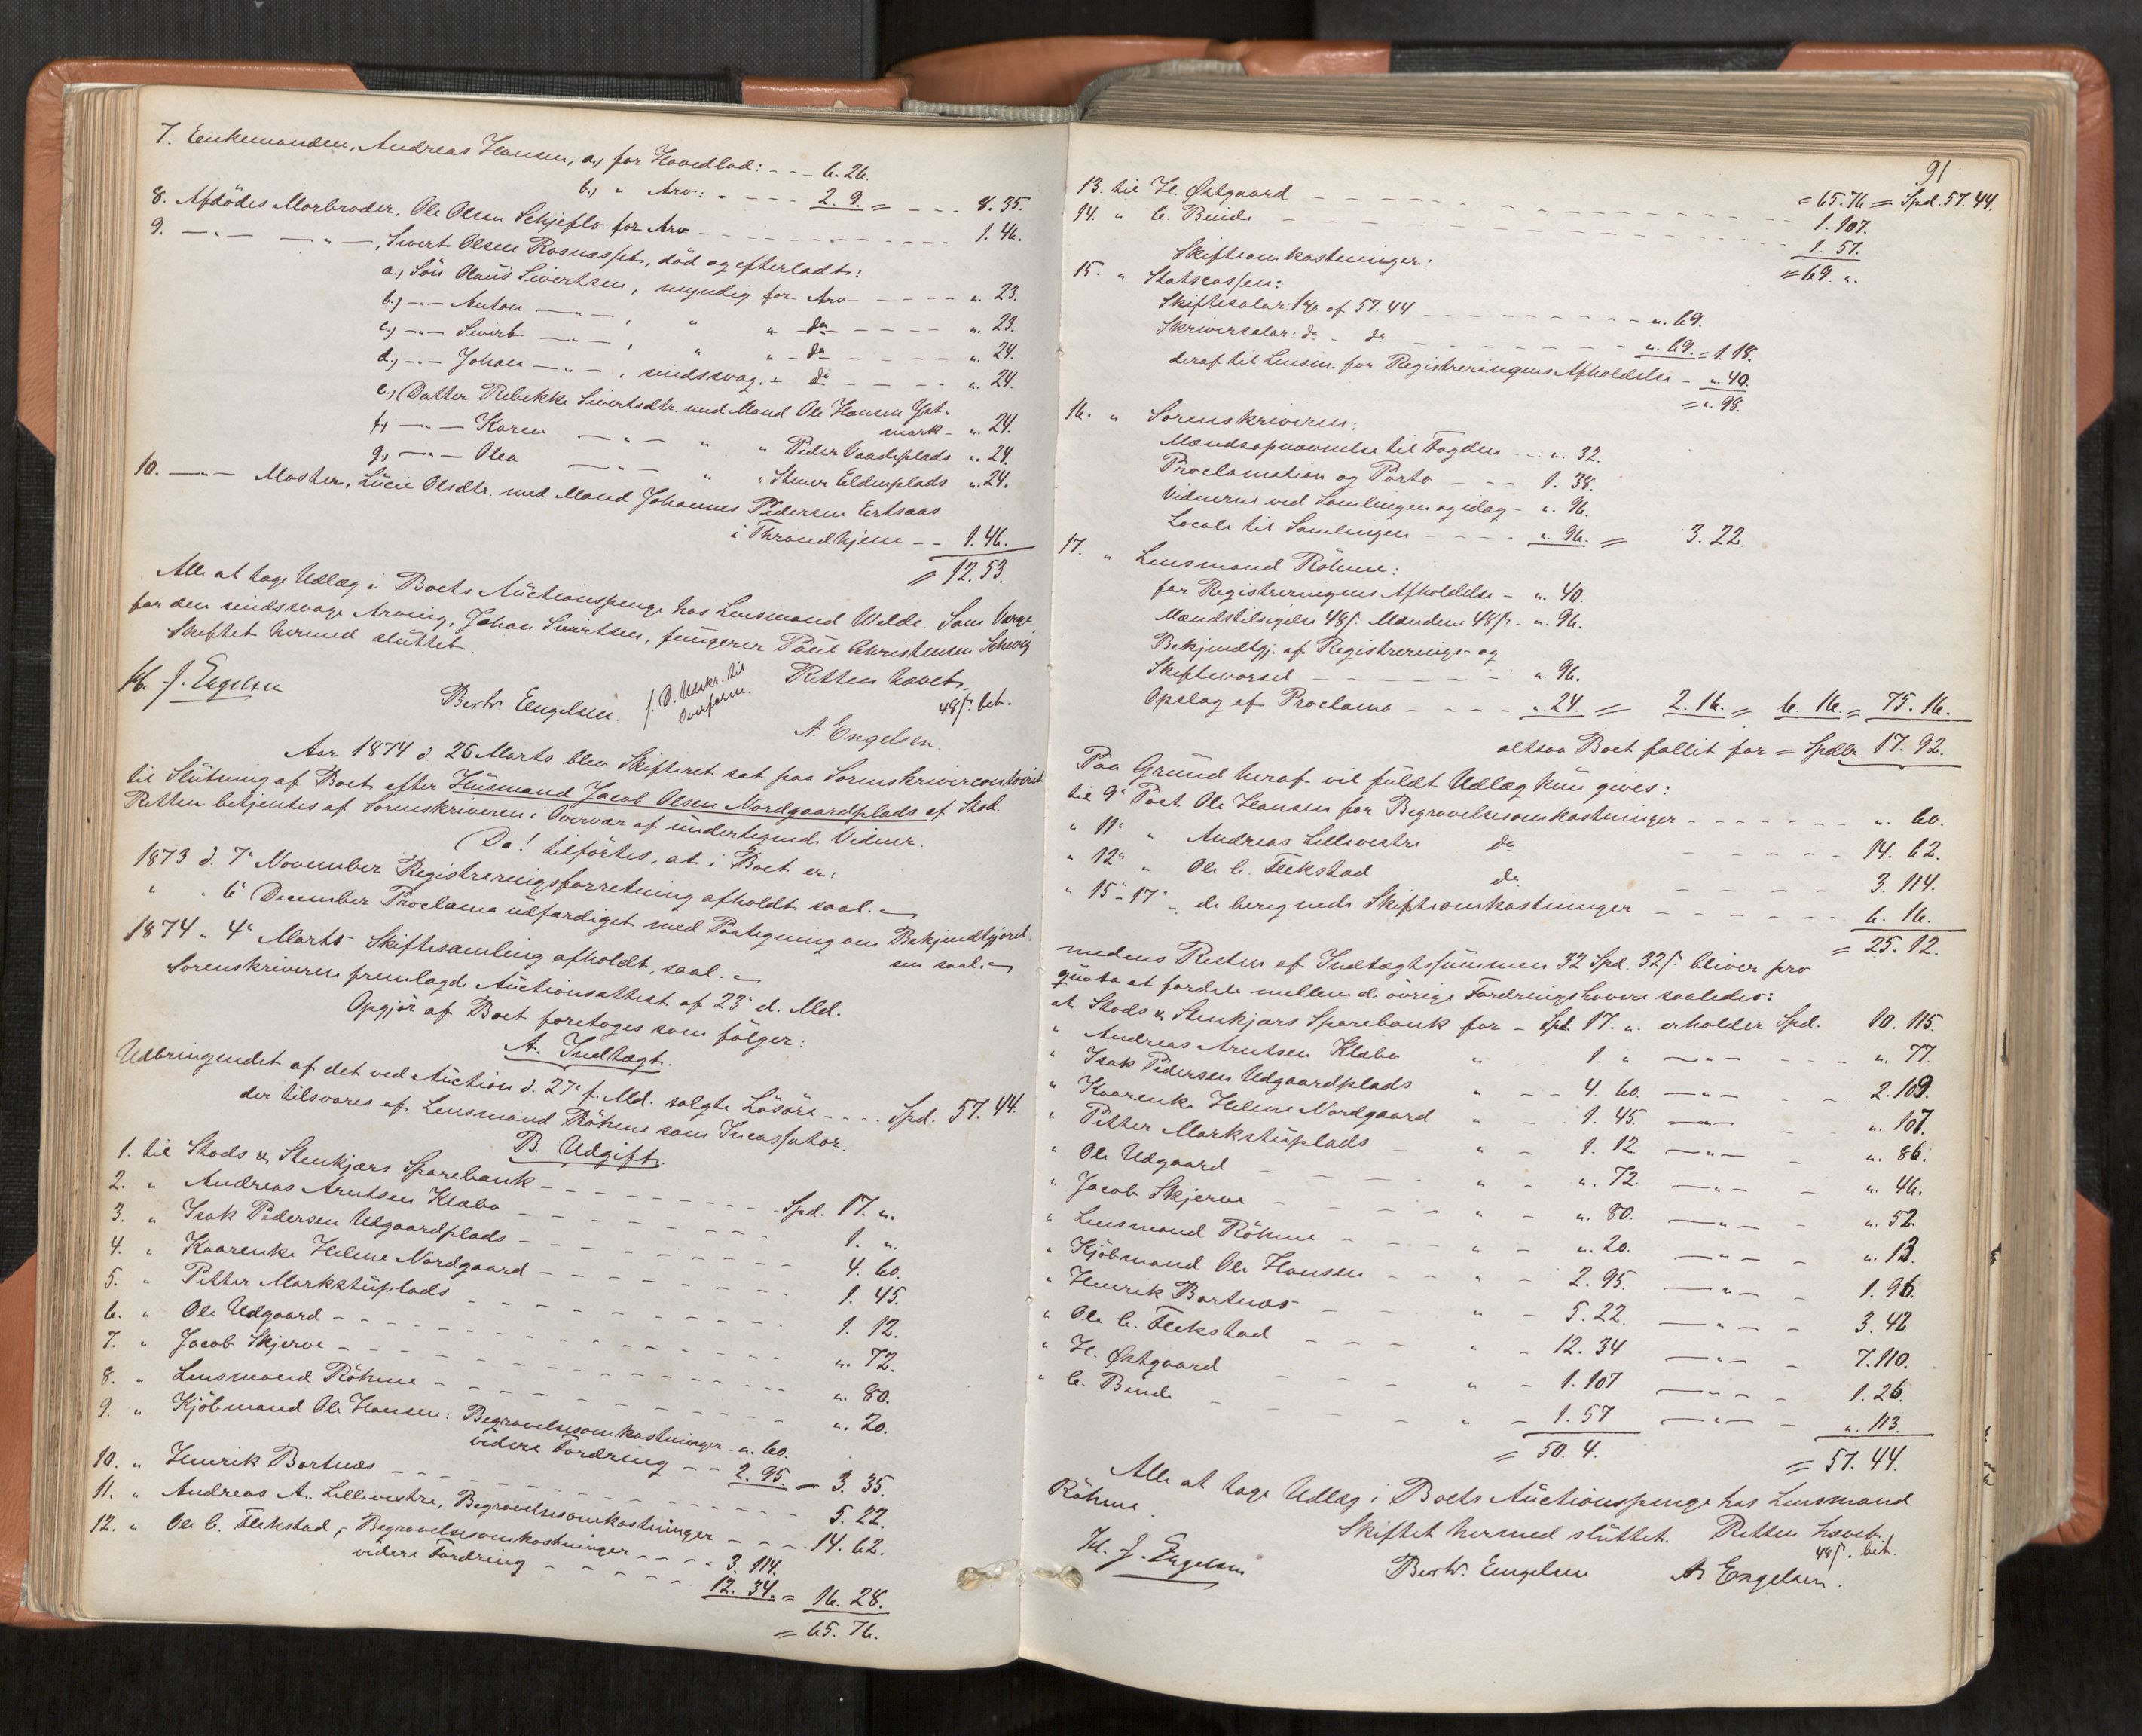 7. Enkemanden, Andreas Hansen, a, for Hovedlod: - - - 6. 26.
b, " Arv: - - - - 2. 9. = - - - 8. 35.
8. Afdödes Morbroder, Ole Olsen Schjeflo for Arv - - - - - - 1. 46.
9. —"— —"—, Sivert Olsen Rosnæsset, död og efterladt:
a, Sön Olaus Sivertsen, myndig for Arv - - - - - ". 23.
b, —"— Anton —"— , " " do - - - - - ". 23.
c, —"— Sivert —"— , " " do - - - - - ". 24.
d, —"— Johan —"— , sindssvag. " do - - - - ". 24.
e, Datter Rebekke Sivertsdtr. med Mand Ole Hansen Yst-
mark - ". 24.
f, —"— Karen —"— " " Peder Vaadeplads ". 24.
g, —"— Olea —"— " " Stener Eldenplads ". 24.
10. —"— Moster, Lucie Olsdtr. med Mand Johannes Pedersen Ertsaas
i Throndhjem - - 1. 46.
= 12. 53.
Alle at tage Udlæg i Boets Auctionspenge hos Lensmand Welde. Som Værge
for den sindssvage Arving, Johan Sivertsen, fungerer Paul Christensen
Skiftet hermed sluttet.
Retten hævet.
48 s. bet.
J. Engelsen
Berth. Engelsen.
f. D. Udskr. til
Overform.
A. Engelsen.
Aar 1874 d. 26 Marts blev Skifteret sat paa Sorenskrivercontoiret
til Slutning af Boet efter Huusmand Jacob Olsen Nordgaardplads af Stod.
Retten betjentes af Sorenskriveren i Overvær af undertegnede Vidner.
Da! tilförtes, at i Boet er:
1873 d. 7de November Registreringsforretning afholdt saal. —
" " 6te December Proclama udfærdiget med Paategning om Bekjendtgjørel-
sen saal. —
1874 " 4de Marts Skiftesamling afholdt, saal. —
Sorenskriveren fremlagde Auctionsattest af 23de d. Md.
Opgjör af Boet foretoges som fölger:
A. Indtægt.
Udbringendet af det ved Auction d. 27de f. Md. solgte Lösöre - - - Spd. 57. 44.
der tilsvares af Lensmand Röhme som Incassator.
B. Udgift.
1. til Stods & Stenkjærs Sparebank - - - - - - Spd. 17. ".
2. " Andreas Arntsen Klæbo - - - - - - 1. ".
3. " Isak Pedersen Udgaardplads - - - - - - 4. 60.
4. " Kaarenke Helene Nordgaard - - - - - - 1. 45.
5. " Petter Markstuplads - - - - - - 1. 12.
6. " Ole Udgaard - - - - - - ". 72.
7. " Jacob Skjerve - - - - - - ". 80.
8. " Lensmand Röhme - - - - - - ". 20.
9. " Kjöbmand Ole Hansen: Begravelsesomkostninger - ". 60.
videre Fordring - - 2. 95. = 3. 35.
10. " Henrik Bartnæs - - - - - - 5. 22.
11. " Andreas A. Lillevestre, Begravelsesomkostninger - - - 14. 62.
12. " Ole C. Flekstad, Begravelsesomkostninger - - - 3. 114.
videre Fordring - - - - - 12. 34. = 16. 28.
= 65. 76.
91
= 65. 76 = Spd. 57. 44.
13. til H. Østgaard - - - - - - 1. 107.
14. " C. Binde - - - - - - 1. 57.
= 69. ".
Skifteomkostninger:
15. " Statscassen:
Skiftesalær: 1 % af 57. 44 - - - - - - ". 69.
Skriversalær: do - do - - - - - - ". 69. = 1. 18.
deraf til Lensm. for Registreringens Afholdelse - ". 40.
= ". 98.
16. " Sorenskriveren:
Mændsopnævnelse til Fogden - - - ". 32.
Proclamation og Porto - - - 1. 38.
Vidnerne ved Samlingen og idag - ". 96.
Locale til Samlingen - - - - ". 96. = 3. 22.
17. " Lensmand Röhme:
for Registreringens Afholdelse - ". 40.
Mændstilsigelse 48 s. Mændene 48 s. - ". 96.
Bekjendtgj. af Registrerings- og
Skiftevarsel - - - - - - ". 96.
Opslag af Proclama - - - - ". 24. = 2. 16. = 6. 16. = 75. 16.
altsaa Boet fallit for = Spdlr. 17. 92.
Paa Grund heraf vil fuldt Udlæg kun gives:
til 9de Post Ole Hansen for Begravelsesomkostninger - - - - - - ". 60.
" 11te " Andreas Lillevestre do - - - - - 14. 62.
" 12te " Ole C. Flekstad do - - - - - 3. 114.
" 15-17de " de beregnede Skifteomkostninger - - - - - - 6. 16.
= 25. 12.
medens Resten af Indtægtssummen 32 Spd. 32 s. bliver pro
quota at fordele mellem de övrige Fordringshavere saaledes:
at Stods & Stenkjærs Sparebank for - Spd. 17. ". erholder Spd. 10. 115.
" Andreas Arntsen Klæbo " 1. " —"— - - - ". 77.
" Isak Pedersen Udgaardplads " - - 4. 60. —"— - - 2. 109.
" Kaarenke Helene Nordgaard " - 1. 45. —"— - - ". 107.
" Petter Markstuplads - " - 1. 12 —"— - ". 86.
" Ole Udgaard - - - - " - ". 72. —"— - ". 46.
" Jacob Skjerve - - - - " - ". 80. —"— - ". 52.
" Lensmand Röhme - - - " - ". 20. —"— - ". 13.
" Kjöbmand Ole Hansen - - " - 2. 95. —"— - 1. 96.
" Henrik Bartnæs - - - " - 5. 22. —"— - 3. 42.
" Ole C. Flekstad - - - " - 12. 34 —"— - 7. 110.
" H. Østgaard - - - " - 1. 107 —"— - 1. 26.
" C. Binde - - - - " - 1. 57 —"— - ". 113.
= 50. 4. = 57. 44.
Alle at tage Udlæg i Boets Auctionspenge hos Lensmand
Röhme
Skiftet hermed sluttet. Retten hævet.
48 s. bet.
J. Engelsen
Berth. Engelsen
A. Engelsen.